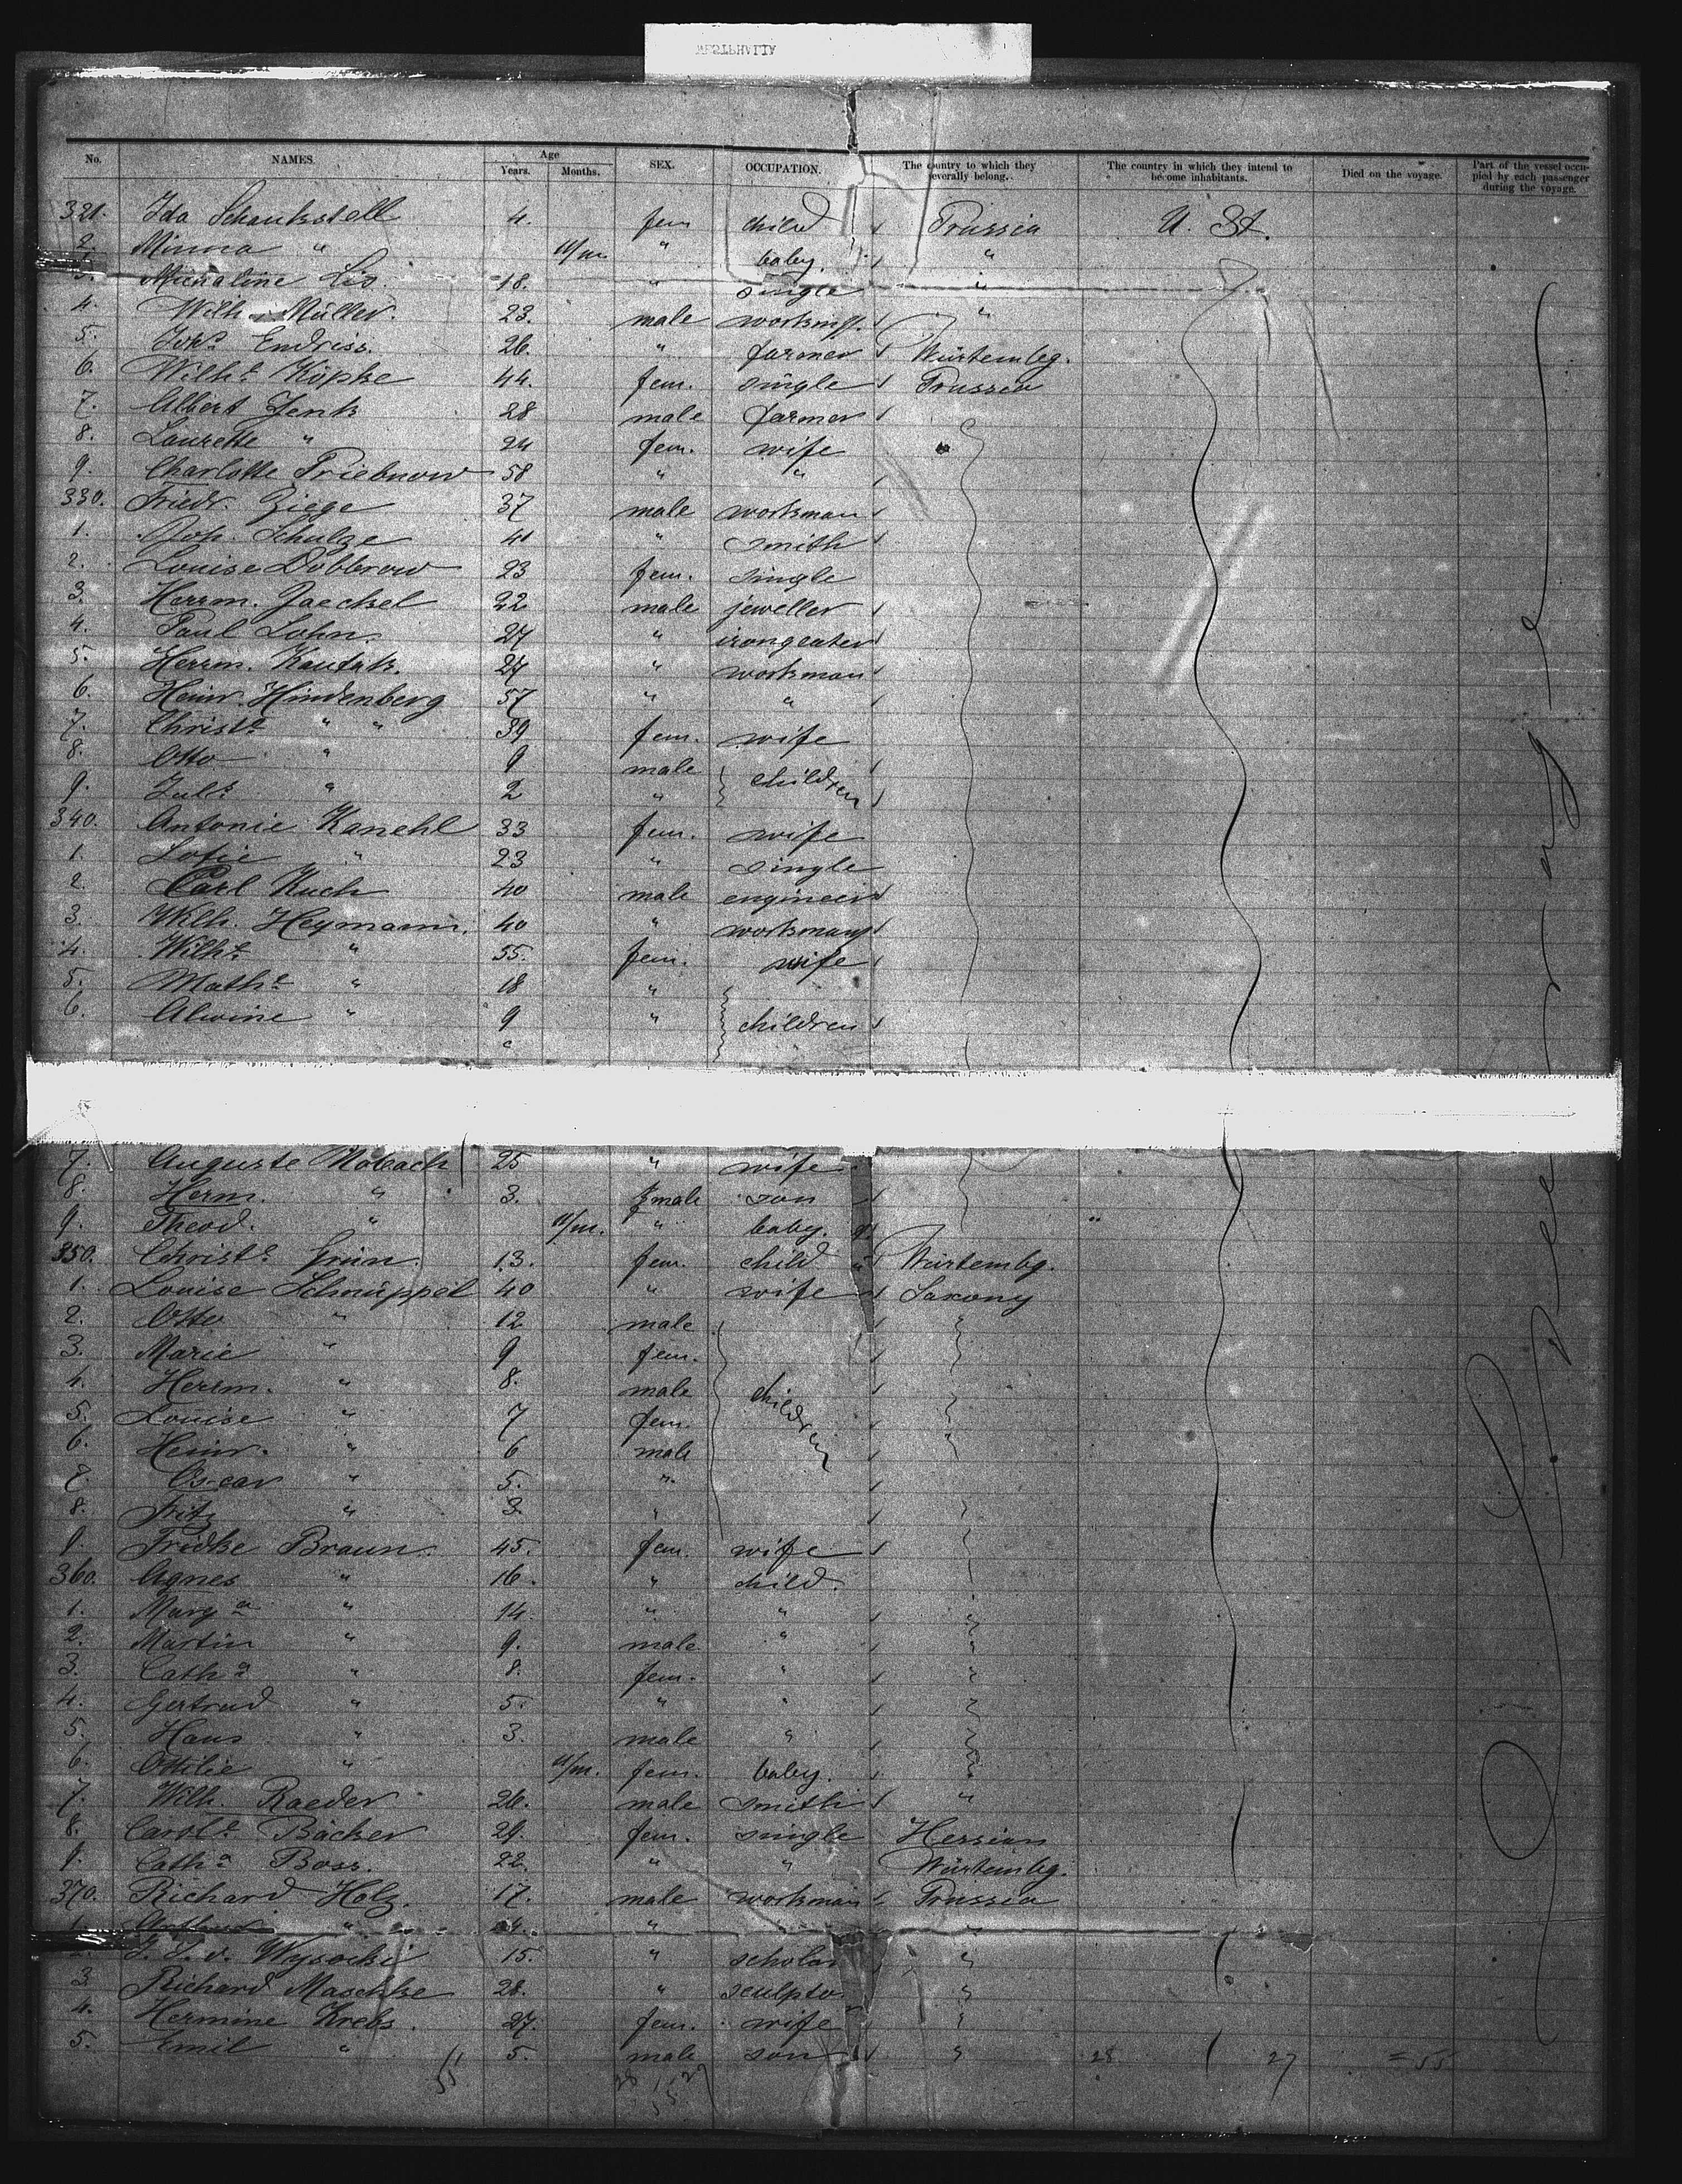 WESTPHALIA
No. NAMES. Age Years. Months. SEX. OCCUPATION. The country to which they severally belong. The country in which they intend to become inhabitants. Died on the voyage. Part of the vessel occupied by each passenger during the voyage.
321. Ida 4. fem child Prussia U. St.
2. Minna " 11/m " baby. "
3. 18. " single "
4. Wilh. Müller. 23. male "
5. Joh.s Endriss. 26. " farmer Würtembg.
6. Wilh.e Köpke 44. fem. single Prussia
7. Albert Zenk 28 male farmer
8. Laurette " 24 fem. wife "
9. Charlotte Priebnow 58 " "
330. Friedr. Ziege 37 male workman
1. Joh. Schulze 41 " smith
2. Louise Dobbrow 23 fem. single
3. Herrm. Jaeckel 22 male jeweller
4. Paul Lohn. 27 "
5. Herrm. 27 " workman
6. Heinr. Hindenberg 57 " "
7. Christ.e " " 39 fem. wife
8. Otto " 9 male children
9. Jul.s " 2 "
340. Antonie Kanehl 33 fem. wife
1. Sofie " 23 " single
2. Carl Kuch 40 male engineer
3. Wilh. Heymann. 40 " workman
4. Wilh.e " 55. fem. wife
5. Math.e " 18 "
6. Alwine " 9 " children
7. Auguste 25 " wife
8. Herm. " 3. male son
9. Theod. " 11/m. " baby. "
350. Christ.e Grün. 13. fem. child Würtembg.
1. Louise Schnüppel 40 " wife Saxony
2. Otto " 12 male
3. Marie " 9 fem.
4. Herrm. " 8. male children
5. Louise " 7 fem.
6. Heinr. " 6 male
7. Oscar " 5. "
8. Fritz " 3. "
9. Fridke Braun. 45. fem. wife
360. Agnes " 16. " child.
1. Marg.a " 14. " " "
2. Martin " 9. male " "
3. Cath.a " 8. fem. " "
4. Gertrud " 5. " " "
5. Hans " 3. male " "
6. Ottilie " 11/m. fem. baby. "
7. Wilh. Raeder 26. male smith "
8. Carol.e Bäcker 29. fem. single Hessian
9. Cath.a Boss. 22. " " Würtembg.
370. Richard Holz. 17. male workman Prussia
1. " "
J. L. v. Wysocki 15. " scholar "
3 Richard Maschke 28. " sculptor "
4. Hermine Krebs. 27. fem. wife
5. Emil " 5. male son " 28 27 = 55
55